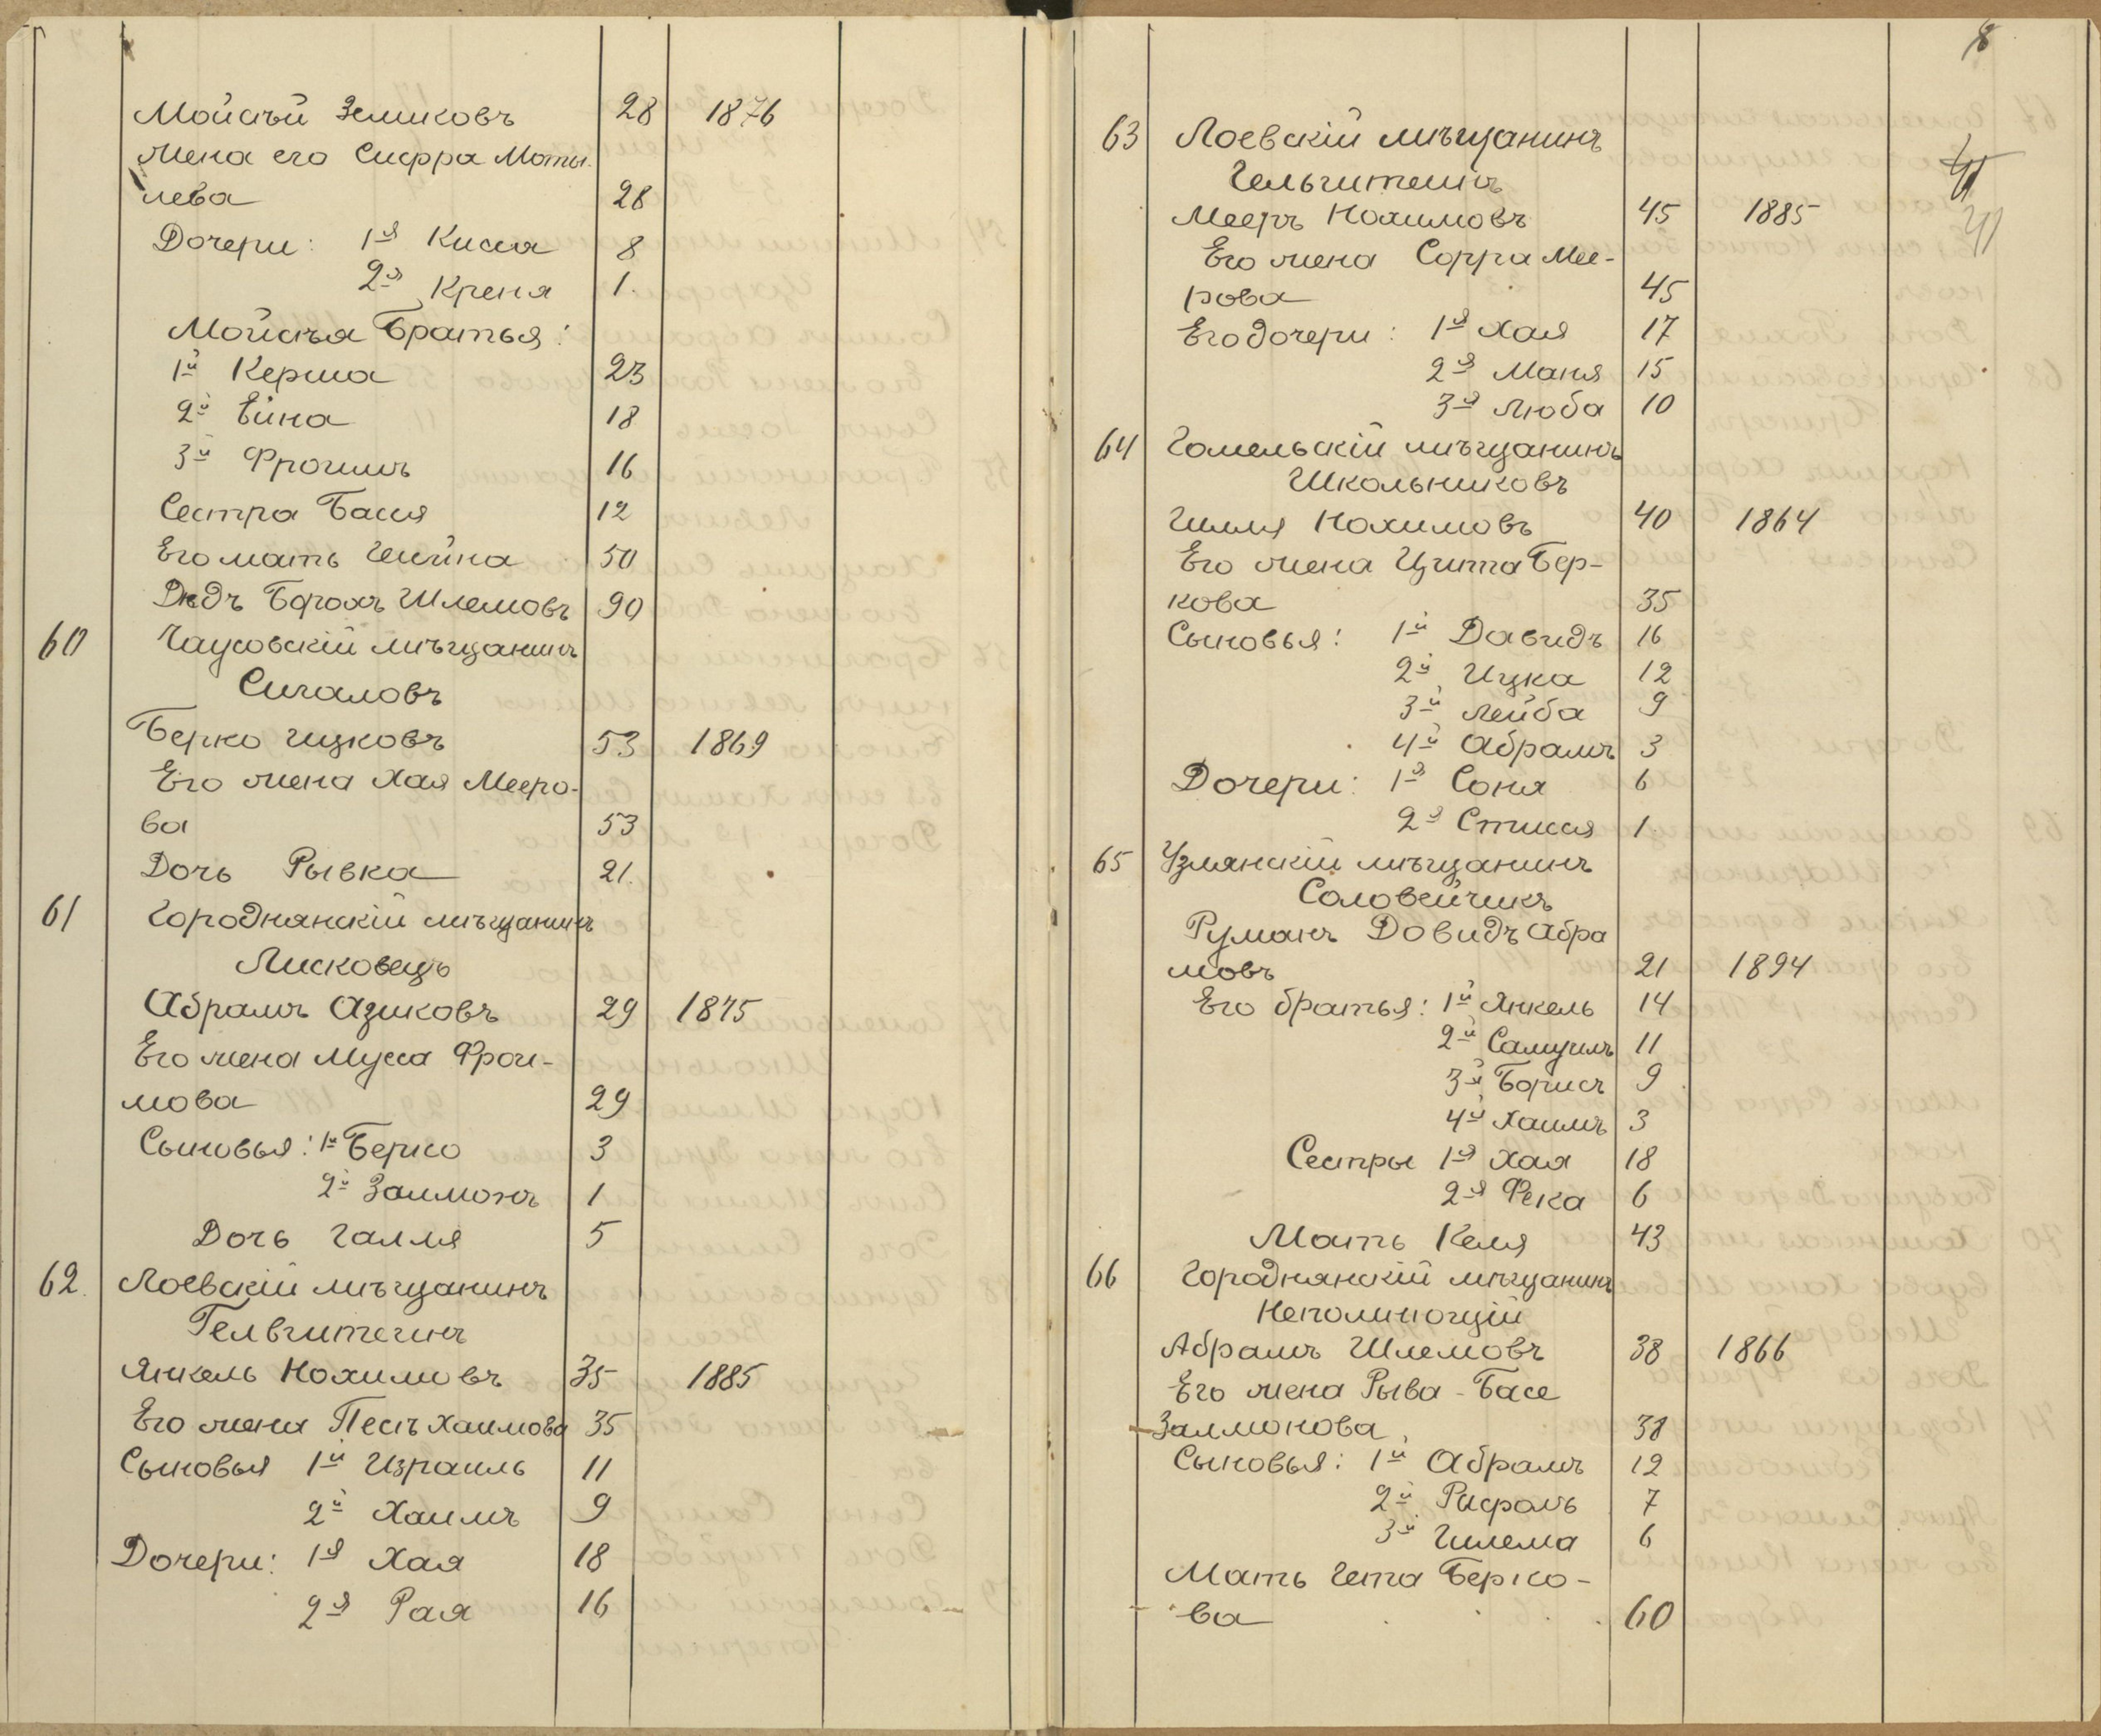 Мойсѣй Зеликовъ 28 1876
Жена его Сифра Моты-
лева 28
Дочери: 1я Кисля 8
2я Креня 1.
Мойсѣя Братья:
1й Керша 23
2й Ейна 18
3й Фроимъ 16
Сестра Бася 12
Его мать Шейна 50
Дѣдъ Борохъ Шлемовъ 90
60 Чаусовскій мѣщанинъ
Сигаловъ
Берко Ицковъ 53 1869
Его жена Хая Мееро-
ва 53
Дочь Рывка 21.
61 Городнянскій мѣщанинъ
Лисковецъ
Абрамъ Азиковъ 29 1875
Его жена Муса Фрои-
мова 29
Сыновья: 1й Берко 3
2й Залмонъ 1
Дочь Галля 5
62. Лоевскій мѣщанинъ
Гельчитешнъ
Янкель Нохимовъ 35 1885
Его жена Песѣ Хаимова 35
Сыновья 1й Израиль 11
2й Хаимъ 9
Дочери: 1я Хая 18
2я Рая 16
8
63 Лоевскій мѣщанинъ
Гельчитешнъ
Мееръ Нохимовъ 45 1885
41
Его жена Сорра Мее-
рова 45
Его дочери: 1я Хая 17
2я Маня 15
3я Люба 10
64 Гомельскій мѣщанинъ
Школьниковъ
Гиля Нохимовъ 40 1864
Его жена Ципа Бер-
кова 35
Сыновья: 1й Давидъ 16
2й Ицка 12
3й Лейба 9
4й Абрамъ 3
Дочери: 1я Соня 6
2я Стися 1.
65 Узлянскій мѣщанинъ
Соловейчикъ
Руманъ Довидъ Абра
мовъ 21 1894
Его братья: 1й Янкель 14
2й Самуилъ 11
3й Борисъ 9
4й Хаимъ 3
Сестры 1я Хая 18
2я Река 6
Мать Келя 43
66 Городнянскій мѣщанинъ
Непомнющій
Абрамъ Шлемовъ 38 1866
Его жена Рыва-Басе
Залмонова 38
Сыновья: 1й Абрамъ 12
2й Рафолъ 7
3й Шлема 6
Мать Гета Берко-
ва 60